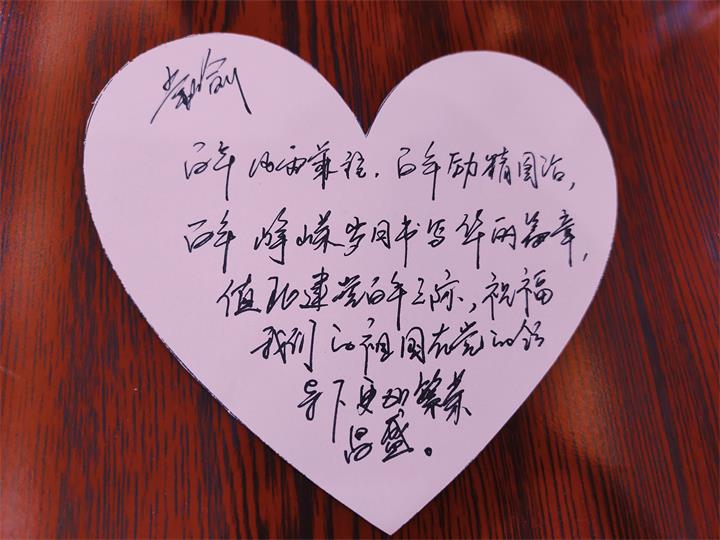 百年风雨兼程，百年励精图治，
百年峥嵘岁月书写华丽篇章，
值此建党百年之际，祝福
我们的祖国在党的领
导下更加繁荣
昌盛。